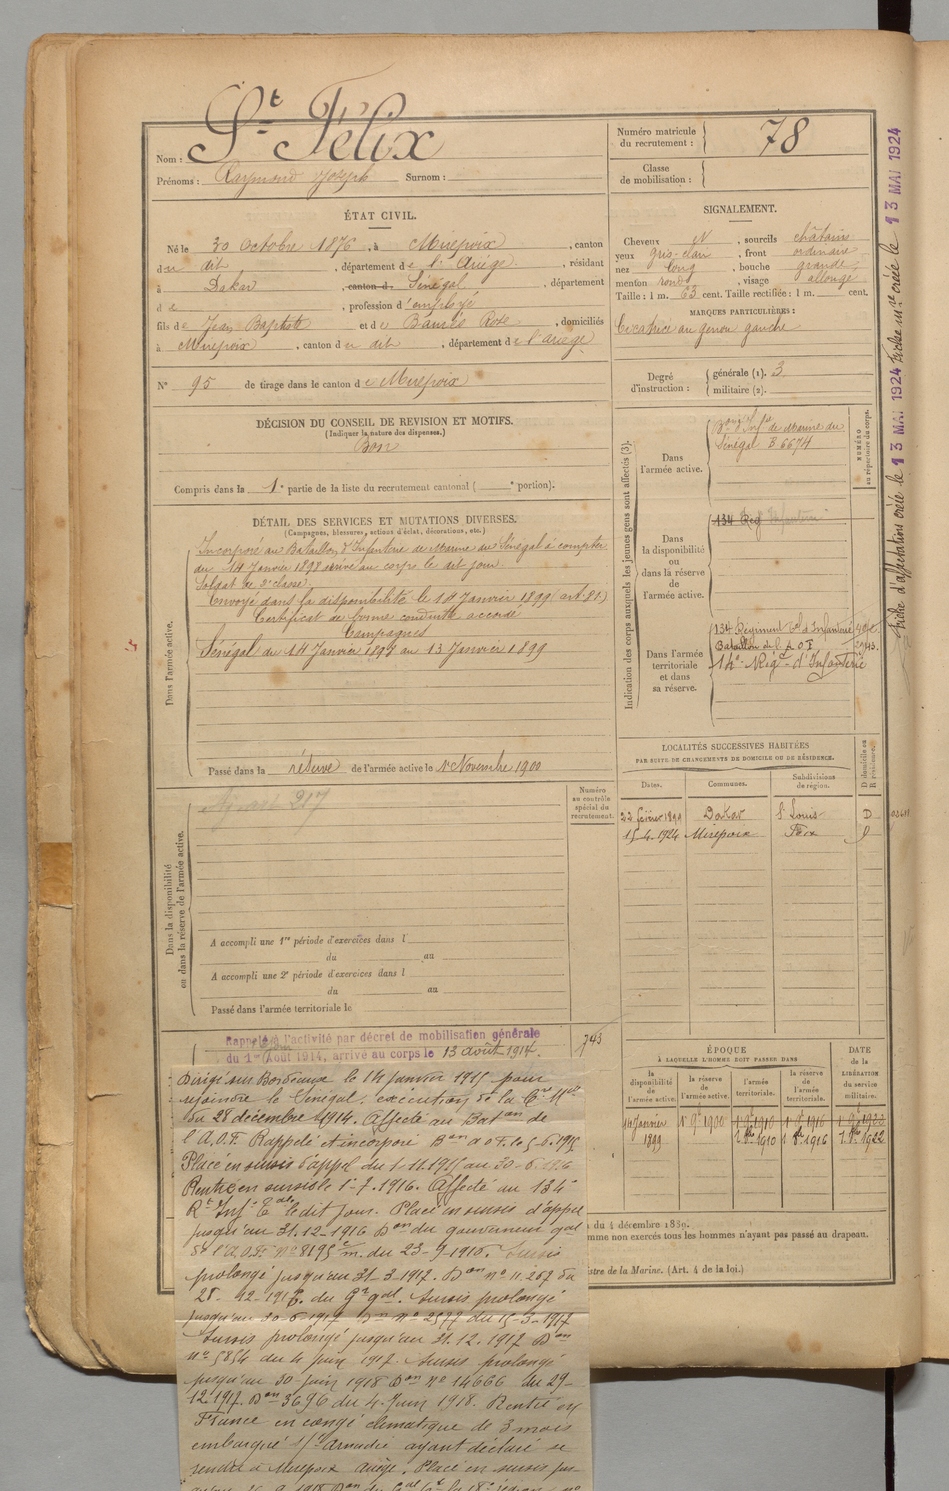 St Félix
Nom :
Prénoms : Raymond Joseph Surnom :
Numéro matricule du recrutement : 78
Classe de mobilisation :
ÉTAT CIVIL.
Né le 30 Octobre 1876, à Mirepoix, canton
du dit, département de l'Ariège, résidant
à Dakar, canton d. Sénégal, département
d e, profession d'employé
fils de Jean Baptiste et de Rose, domiciliés
à Mirepoix, canton du dit, département de l'Ariège
N° 95 de tirage dans le canton de Mirepoix
SIGNALEMENT.
Cheveux N, sourcils châtains
yeux gris-clair, front ordinaire
nez long, bouche grande
menton rond, visage allongé
Taille : 1 m. 63 cent. Taille rectifiée : 1 m. cent.
MARQUES PARTICULIÈRES :
Cicatrice au genou gauche
Degré d'instruction : générale (1). 3
militaire (2).
DÉCISION DU CONSEIL DE REVISION ET MOTIFS.
(Indiquer la nature des dispenses.)
Bon
Compris dans la 1e partie de la liste du recrutement cantonal ( e portion).
DÉTAIL DES SERVICES ET MUTATIONS DIVERSES.
(Campagnes, blessures, actions d'éclat, décorations, etc.)
Dans l'armée active.
Incorporé au Bataillon d'Infanterie de Marine du Sénégal à compter
du 14 Janvier 1898 arrivé au corps le dit jour.
Soldat de 2e classe.
Envoyé dans la disponibilité le 14 Janvier 1899 (art. 81.)
Certificat de bonne conduite accordé
Campagnes
Sénégal du 14 Janvier 1897 au 13 Janvier 1899
Passé dans la réserve de l'armée active le 1er Novembre 1900
Indication des corps auxquels les jeunes gens sont affectés (3).
NUMÉRO au répertoire du corps.
Dans l'armée active.
Bon d'Infie de Marine du
Sénégal B 6674
Dans la disponibilité ou dans la réserve de l'armée active.
134 Rég Infanterie
Dans l'armée territoriale et dans sa réserve.
134 Régiment Tal d'Infanterie
Bataillon de l'A O F
14e Régt d'Infanterie
Fiche d'affectation créée le 13 MAI 1924 créée le 13 MAI 1924
LOCALITÉS SUCCESSIVES HABITÉES
PAR SUITE DE CHANGEMENTS DE DOMICILE OU DE RÉSIDENCE.
Dates. Communes. Subdivisions de région. D domicile ou R résidence.
22 février 1899 Dakar St Louis D
15-4-1924 Mirepoix Foix
Dans la disponibilité ou dans la réserve de l'armée active.
Numéro au contrôle spécial du recrutement.
A accompli une 1re période d'exercices dans l
du au
A accompli une 2e période d'exercices dans l
du au
Passé dans l'armée territoriale le
743
ÉPOQUE
À LAQUELLE L'HOMME DOIT PASSER DANS
la disponibilité de l'armée active. la réserve de l'armée active. l'armée territoriale. la réserve de l'armée territoriale. DATE de la LIBÉRATION du service militaire.
14 Janvier 1899
1er 9e 1900 1er 9e 1910 1er 9e 1916 1er 9e 1922
1 8bre 1910 1 8bre 1916 1 8bre 1922
du 4 décembre 1889.
mme non exercés tous les hommes n'ayant pas passé au drapeau.
stre de la Marine. (Art. 4 de la loi.)
Rappelé à l'activité par décret de mobilisation générale
du 1er Août 1914, arrivé au corps le 13 août 1914.
Dirigé sur Bordeaux le 14 Janvier 1915 pour
rejoindre le Sénégal, exécution de la Cre Mlle
du 28 décembre 1914. Affecté au Baton de
l'A.O.F. Rappelé et incorporé Bon A O F. le 5-6-1915
Placé en sursis d'appel du 1-11-1915 au 30-6-1916
Rentré en sursis le 1-7-1916. Affecté au 134e
Rt Inf. Tale le dit jour. Placé en sursis d'appel
jusqu'au 31-12-1916 Don du gouverneur gal
de l'A.O.F. n° 8195 m. du 23-9-1916. Sursis
prolongé jusqu'au 31-3-1917. Don n° 11.267 du
28-12-1916. du Gr gal. Sursis prolongé
jusqu'au 30-6-1917 Don n° 2577 du 15-3-1917
Sursis prolongé jusqu'au 31.12.1917 Don
n° 5854 du 4 Juin 1917. Sursis prolongé
jusqu'au 30 Juin 1918 Don n° 14666 du 29-
12.1917. Don 3696 du 4 Juin 1918. Rentré en
France en congé climatique de 3 mois
embarqué ayant déclaré se
rendre à Mirepoix Ariège. Placé en sursis jus-